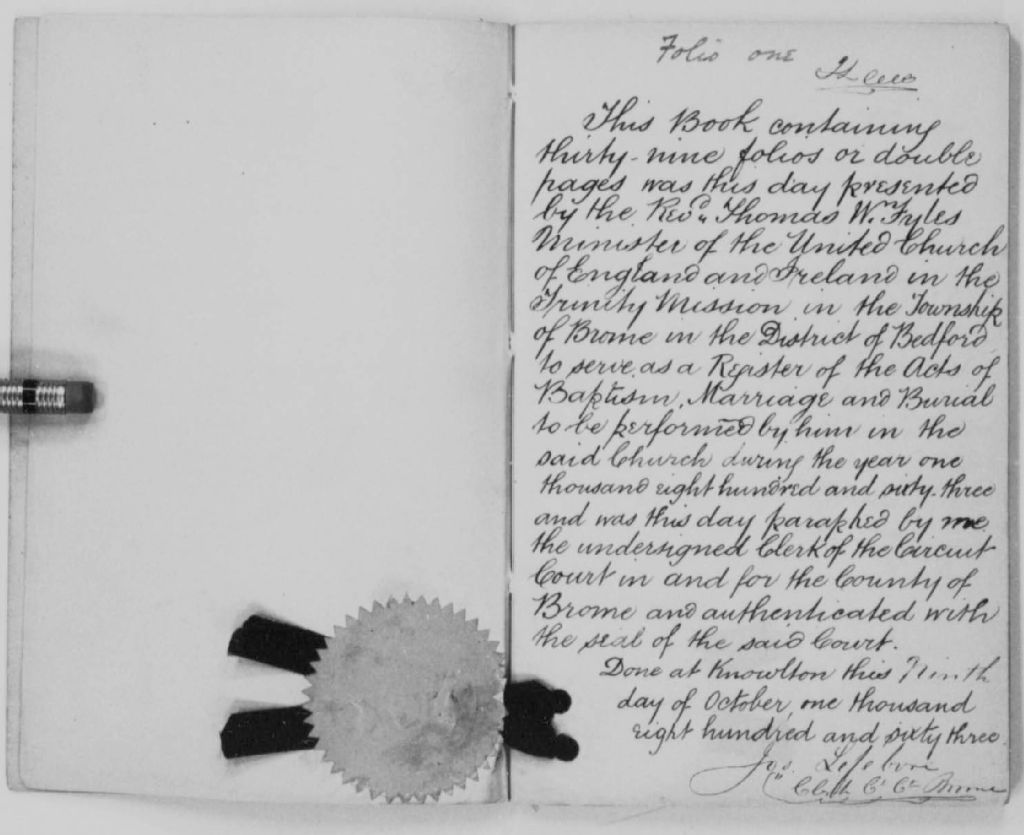 Folio one
This Book containing
thirty-nine folios or double
pages was this day presented
by the Revd. Thomas Wm. Fyles
Minister of the United Church
of England and Ireland in the
Trinity Mission in the Township
of Brome in the District of Bedford
to serve as a Register of the Acts of
Baptism, Marriage and Burial
to be performed by him in the
said Church during the year one
thousand eight hundred and sixty-three
and was this day paraphed by me,
the undersigned Clerk of the Circuit
Court in and for the County of
Brome and authenticated with
the seal of the said Court.
Done at Knowlton this Ninth
day of October, one thousand
eight hundred and sixty three.
Jos. Lefebvre
Clerk C. Ct. Brome